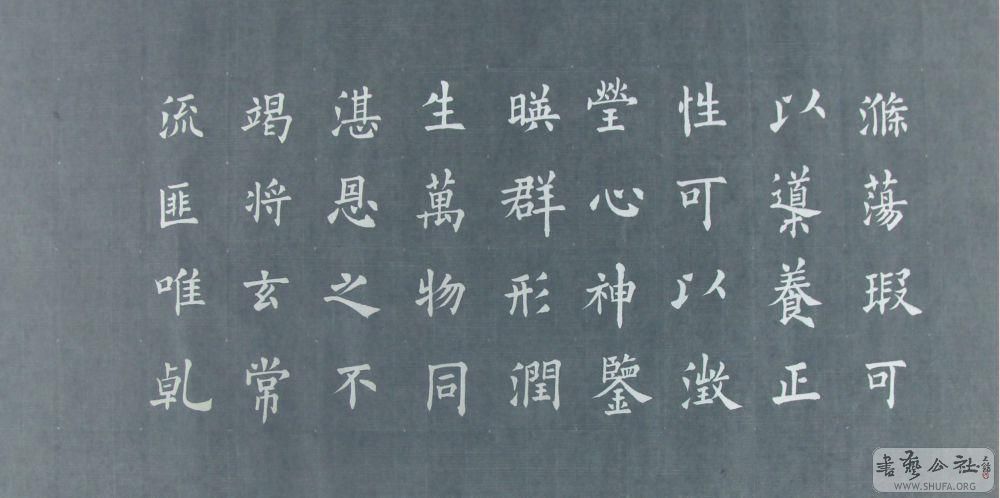 滌蕩瑕可
以導養正
性可以澂
瑩心神鑒
暎群形潤
生萬物同
湛恩之不
竭将玄常
流匪唯乹
書藝公社
WWW.SHUFA.ORG